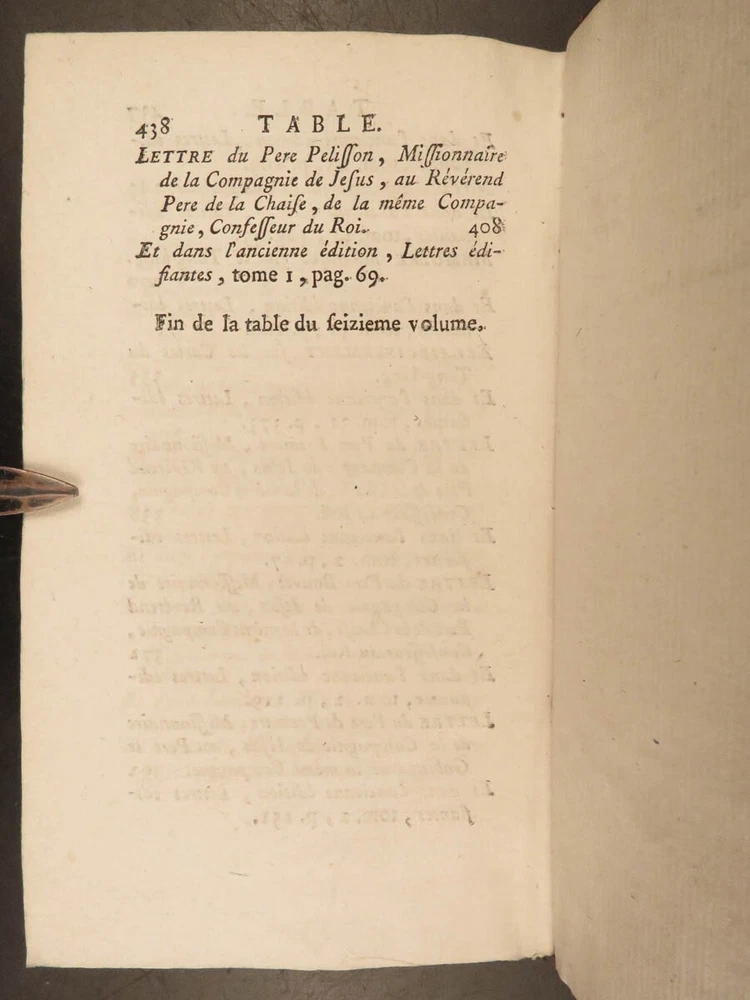 438 TABLE.
LETTRE du Pere Pelisson, Missionnaire
de la Compagnie de Jesus, au Révérend
Pere de la Chaise, de la même Compa-
gnie, Confesseur du Roi. 408
Et dans l'ancienne édition, Lettres édi-
fiantes, tome 1, pag. 69.
Fin de la table du seizieme volume.